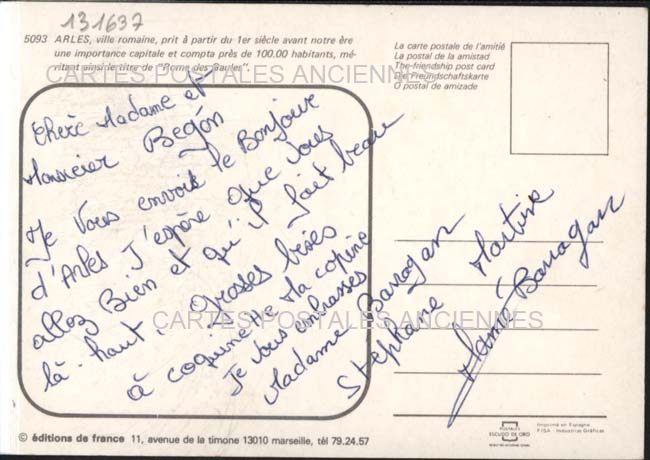 131637
5093 ARLES, ville romaine, prit à partir du 1er siècle avant notre ère
une importance capitale et compta près de 100.00 habitants, mé-
ritant ainsi le titre de "Rome des Gaules".
La carte postale de l'amitié
La postal de la amistad
The friendship post card
Die Freundschaftskarte
O postal de amizade
CARTES POSTALES ANCIENNES
Chère Madame et
Monsieur Begon
Je vous envoie le Bonjour
d'Arles J'espère que vous
allez Bien et qu'il fait beau
là-haut, grosses bises
à coquinette Ma copine
Je vous embrasses
Madame Barragan
Stephane Martine
Mamé Barragan
CARTES POSTALES ANCIENNES
© éditions de france 11, avenue de la timone 13010 marseille, tél 79.24.57
POSTALES
ESCUDO DE ORO
Imprimé en Espagne
FISA - Industrias Gráficas